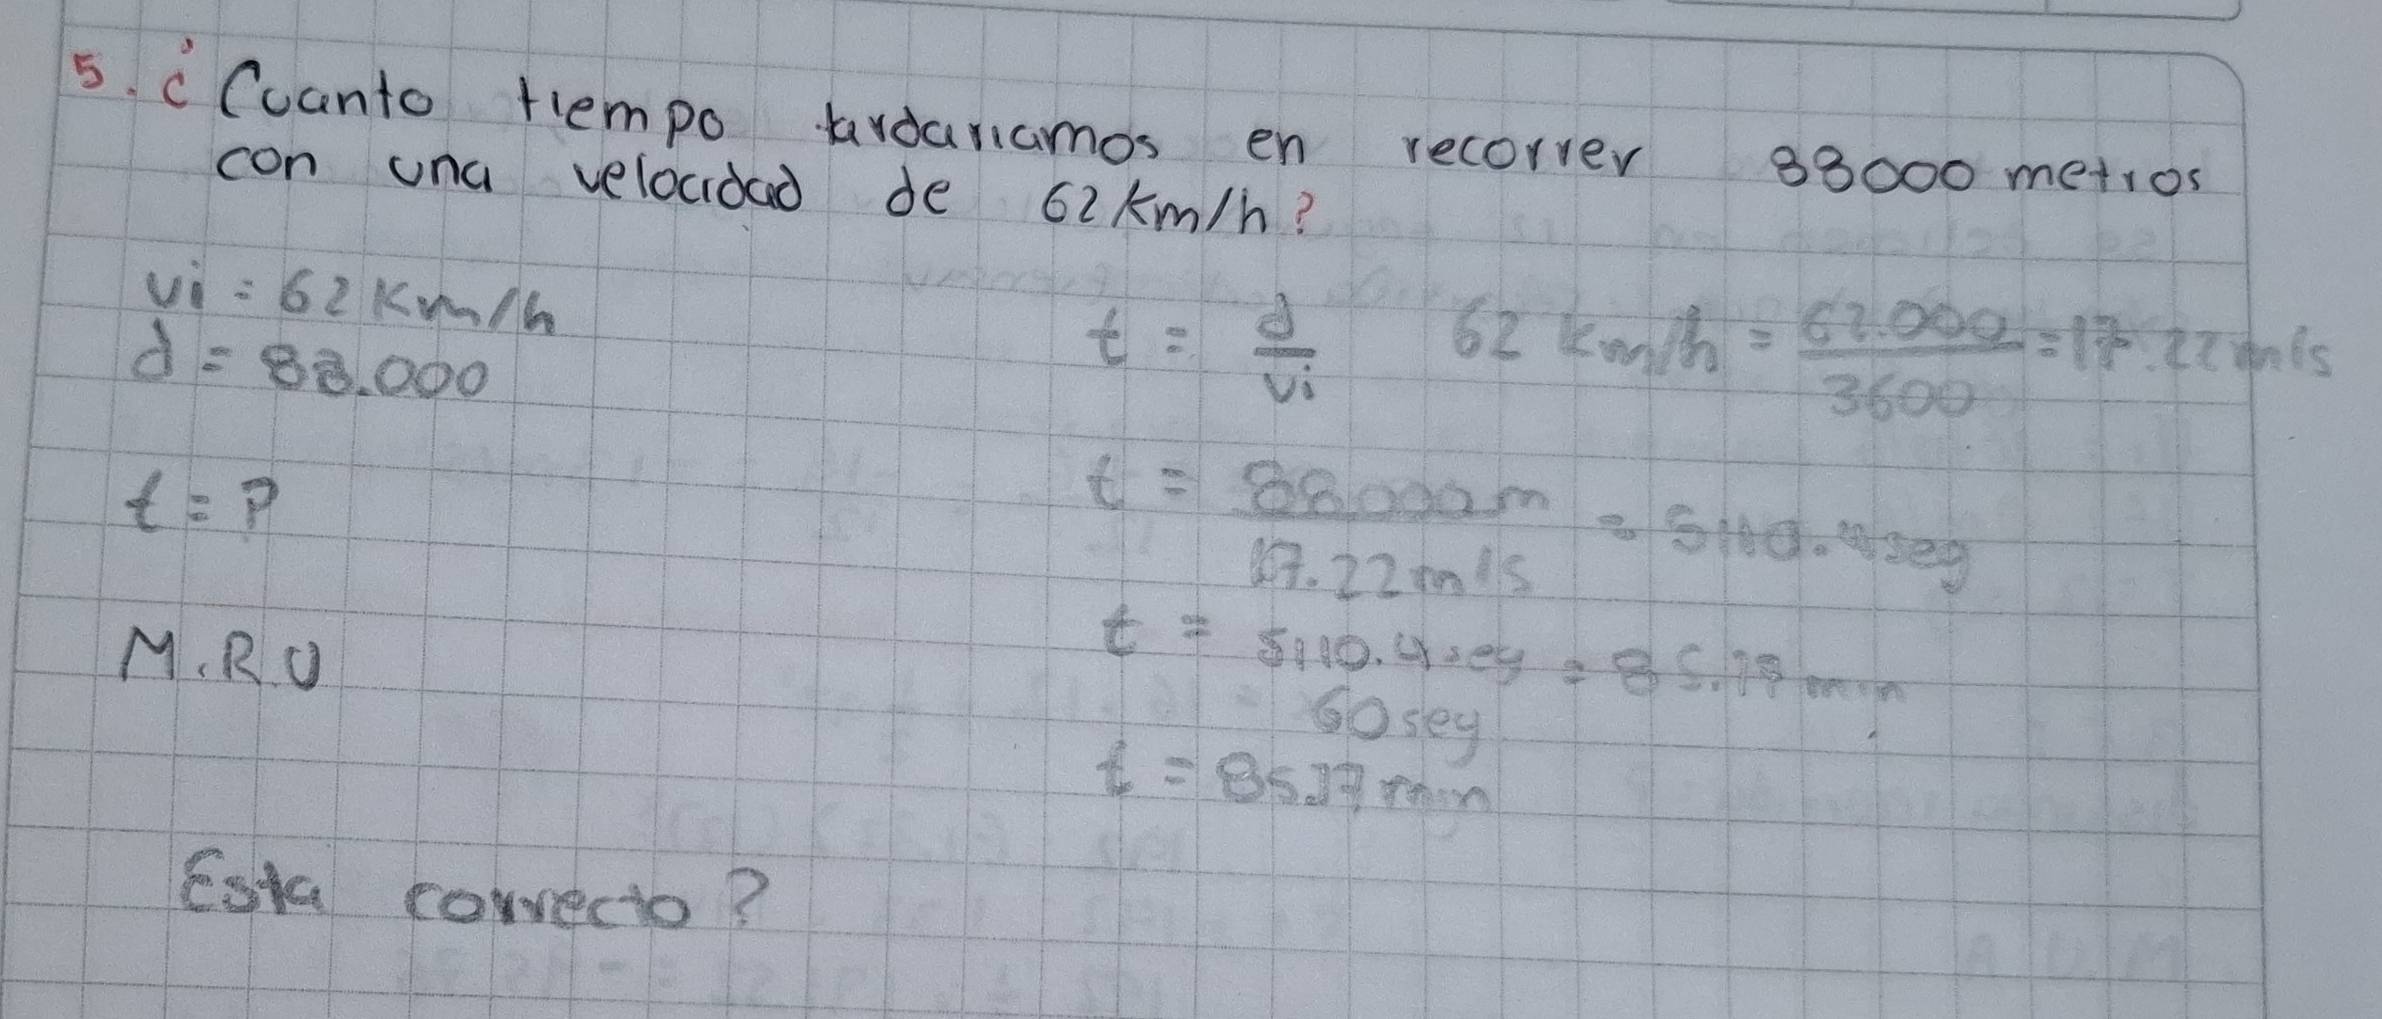 5. ¿Cuanto tiempo tardariamos en recorrer 88000 metros
con una velocidad de 62 Km/h?
vi = 62 Km/h
d = 88.000
t = d/vi 62 km/h = 62.000/3600 = 17.22 m/s
t = ?
t = 88000m/17.22 m/s = 5110.4 seg
M.R.U
t = 5110.4 seg/60 seg = 85.17 min
t = 85.17 min
Esta correcto?